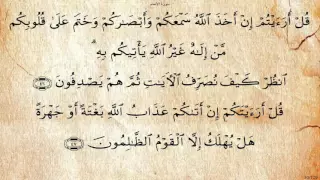 قُلْ أَرَءَيْتُمْ إِنْ أَخَذَ ٱللَّهُ سَمْعَكُمْ وَأَبْصَـٰرَكُمْ وَخَتَمَ عَلَىٰ قُلُوبِكُم
مَّنْ إِلَـٰهٌ غَيْرُ ٱللَّهِ يَأْتِيكُم بِهِ ۗ
ٱنظُرْ كَيْفَ نُصَرِّفُ ٱلْـَٔايَـٰتِ ثُمَّ هُمْ يَصْدِفُونَ ٤٦
قُلْ أَرَءَيْتَكُمْ إِنْ أَتَىٰكُمْ عَذَابُ ٱللَّهِ بَغْتَةً أَوْ جَهْرَةً
هَلْ يُهْلَكُ إِلَّا ٱلْقَوْمُ ٱلظَّـٰلِمُونَ ٤٧